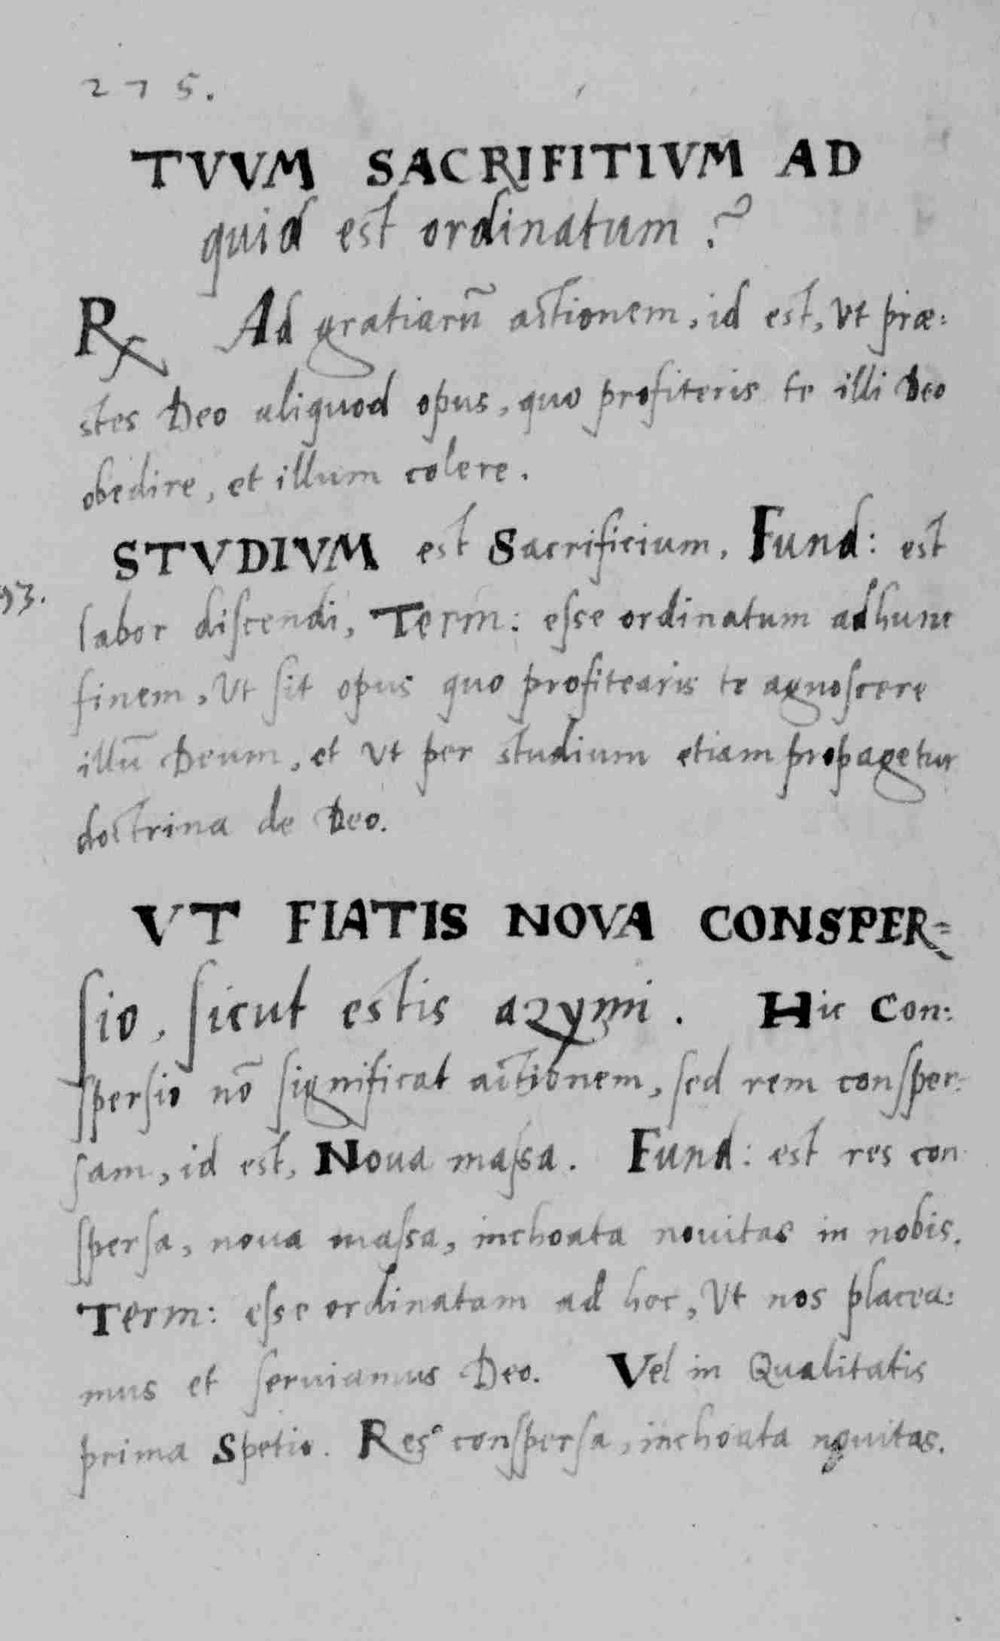 275.
TVVM SACRIFITIVM AD
quid est ordinatum?
R Ad gratiarū actionem, id est, Vt præ:
stes Deo aliquod opus, quo profiteris te illi Deo
obedire, et illum colere.
STVDIVM est Sacrificium. Fund: est
93.
labor discendi, Term: eſse ordinatum ad hunc
finem, Vt ſit opus quo profitearis te agnoſcere
illū Deum, et Vt per studium etiam propagetur
doctrina de Deo.
VT FIATIS NOVA CONSPER=
ſio, ſicut estis azymi. Hic Con:
ſperſio nō ſignificat actionem, ſed rem conſper:
sam, id est, Noua maſsa. Fund: est res con
ſperſa, noua maſsa, inchoata nouitas in nobis.
Term: eſse ordinatam ad hoc, Vt nos placea:
mus et ſeruiamus Deo. Vel in Qualitatis
prima Spetie. Res conſperſa, inchoata nouitas.